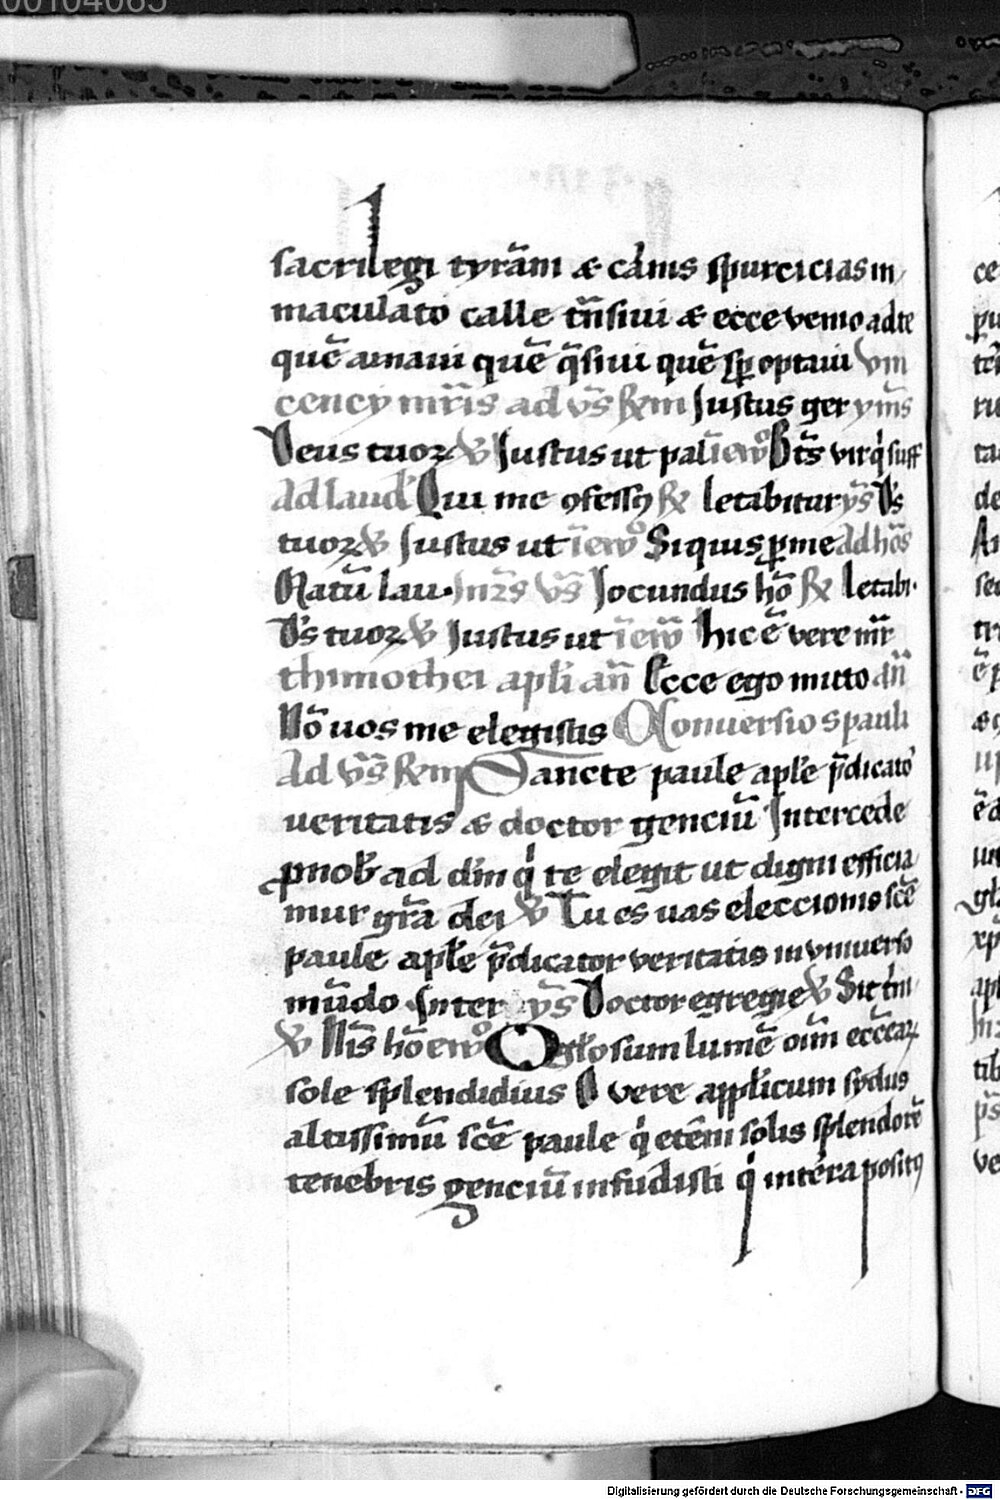 00104065
sacrilegi tyrāni & cāmis spurcicias in
maculato calle tn̄siui & ecce venio ad te
quē amaui quē q̄siui quē sꝑ optaui Vin
cencij mr̄is ad vs̄ Rm̄ Justus ger yms̄
Deus tuoꝝ V Justus ut pal Bt̄s vir q̇ suff
Ad laud Qui me ꝯfessꝰ R letabitur ys̄ Ds̄
tuoꝝ V Justus ut Siquis ꝑ me Ad ho͞s
Natū lau. vs̄ Jocundus hō R letabi.
Ds̄ tuoꝝ V Justus ut Hic ē vere mr̄
thimothei apli an̄ Ecce ego mitto an̄
Nō uos me elegistis Conuersio s pauli
Ad vs̄ Rm̄ Sancte paule aplē p̄dicato
ueritatis & doctor genciū Intercede
ꝓ nob ad dm̄ q̇ te elegit ut digni efficia
mur gr̄a dei V Tu es uas eleccionis scē
paule aplē p̄dicator veritatis in vniuerso
mūdo Inter ys̄ Doctor egregie V Sit
V Nis̄ hō O gl̄osum lumē oīm ecc̄eaꝝ
sole splendidius O vere appl̄icum sydus
altissimū scē paule q̇ etēni solis splendorē
tenebris genciū infudisti q̇ in terra positꝰ
Digitalisierung gefördert durch die Deutsche Forschungsgemeinschaft - DFG